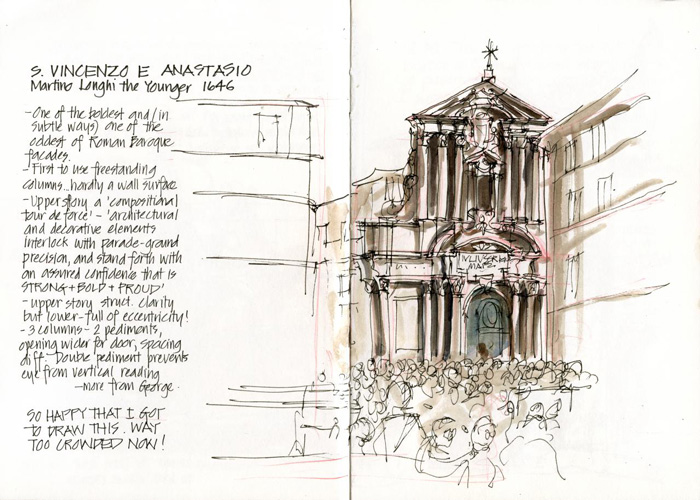 S. VINCENZO E ANASTASIO
Martino Longhi the Younger 1646
- One of the boldest and (in
subtle ways) one of the
oddest of Roman Baroque
facades.
- First to use freestanding
columns... hardly a wall surface
- Upper story a 'compositional
tour de force' - 'architectural
and decorative elements
interlock with parade-ground
precision, and stand forth with
an assured confidence that is
STRONG + BOLD + PROUD'
- upper story struct. clarity
but lower - full of eccentricity!
- 3 columns - 2 pediments,
opening wider for door, spacing
diff. Double pediment prevents
eye from vertical reading
- more from George.
SO HAPPY THAT I GOT
TO DRAW THIS. WAY
TOO CROWDED NOW!